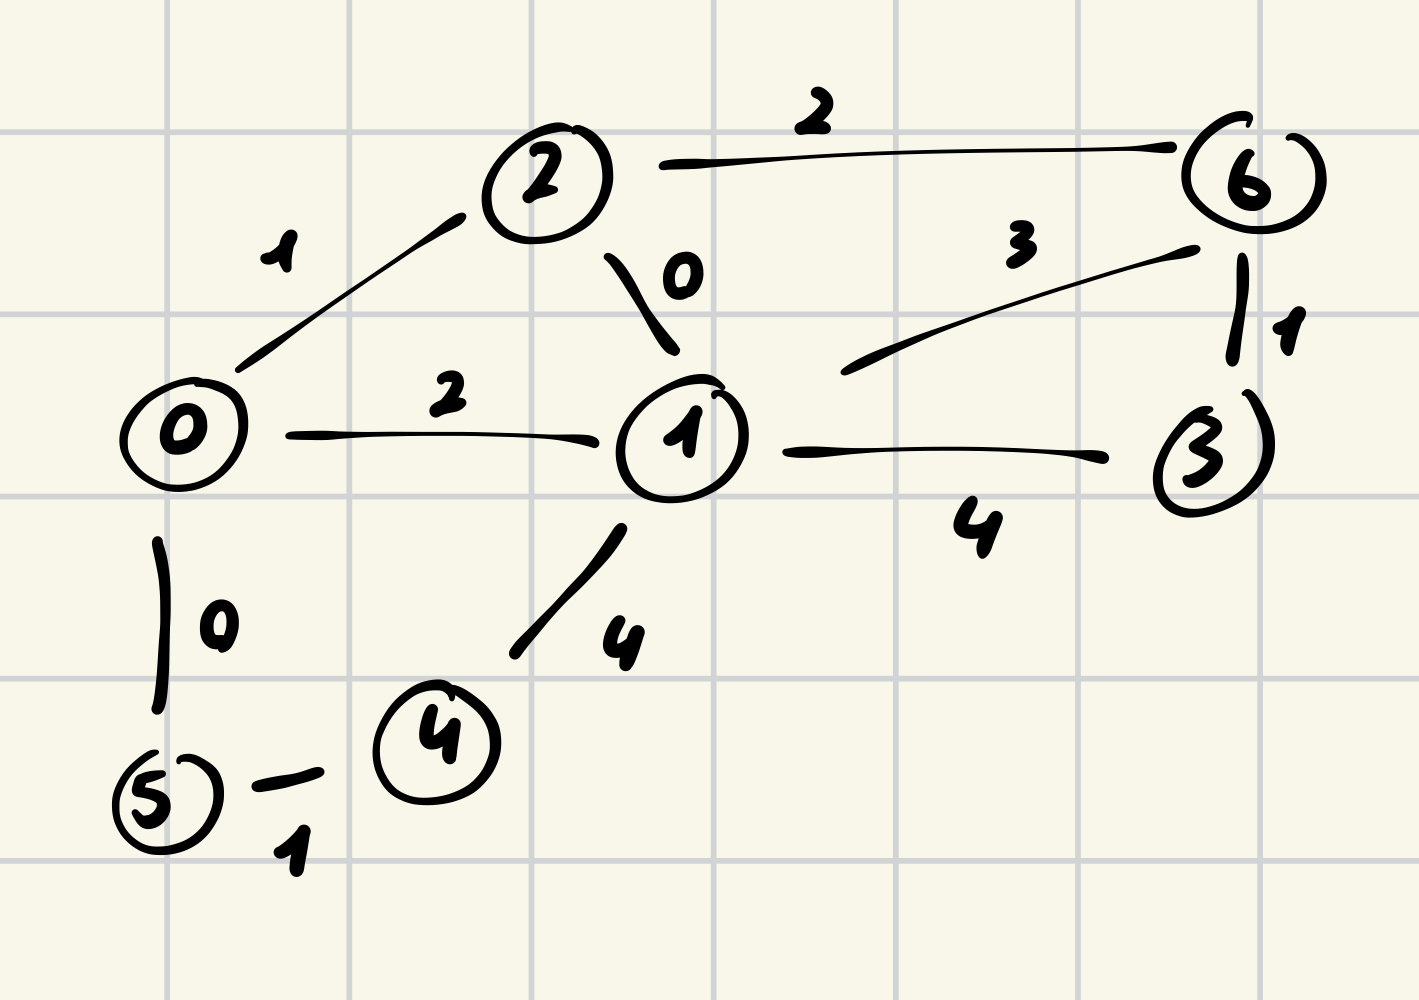 2
2
6
1
0
3
1
0
2
1
3
4
0
4
4
5
1